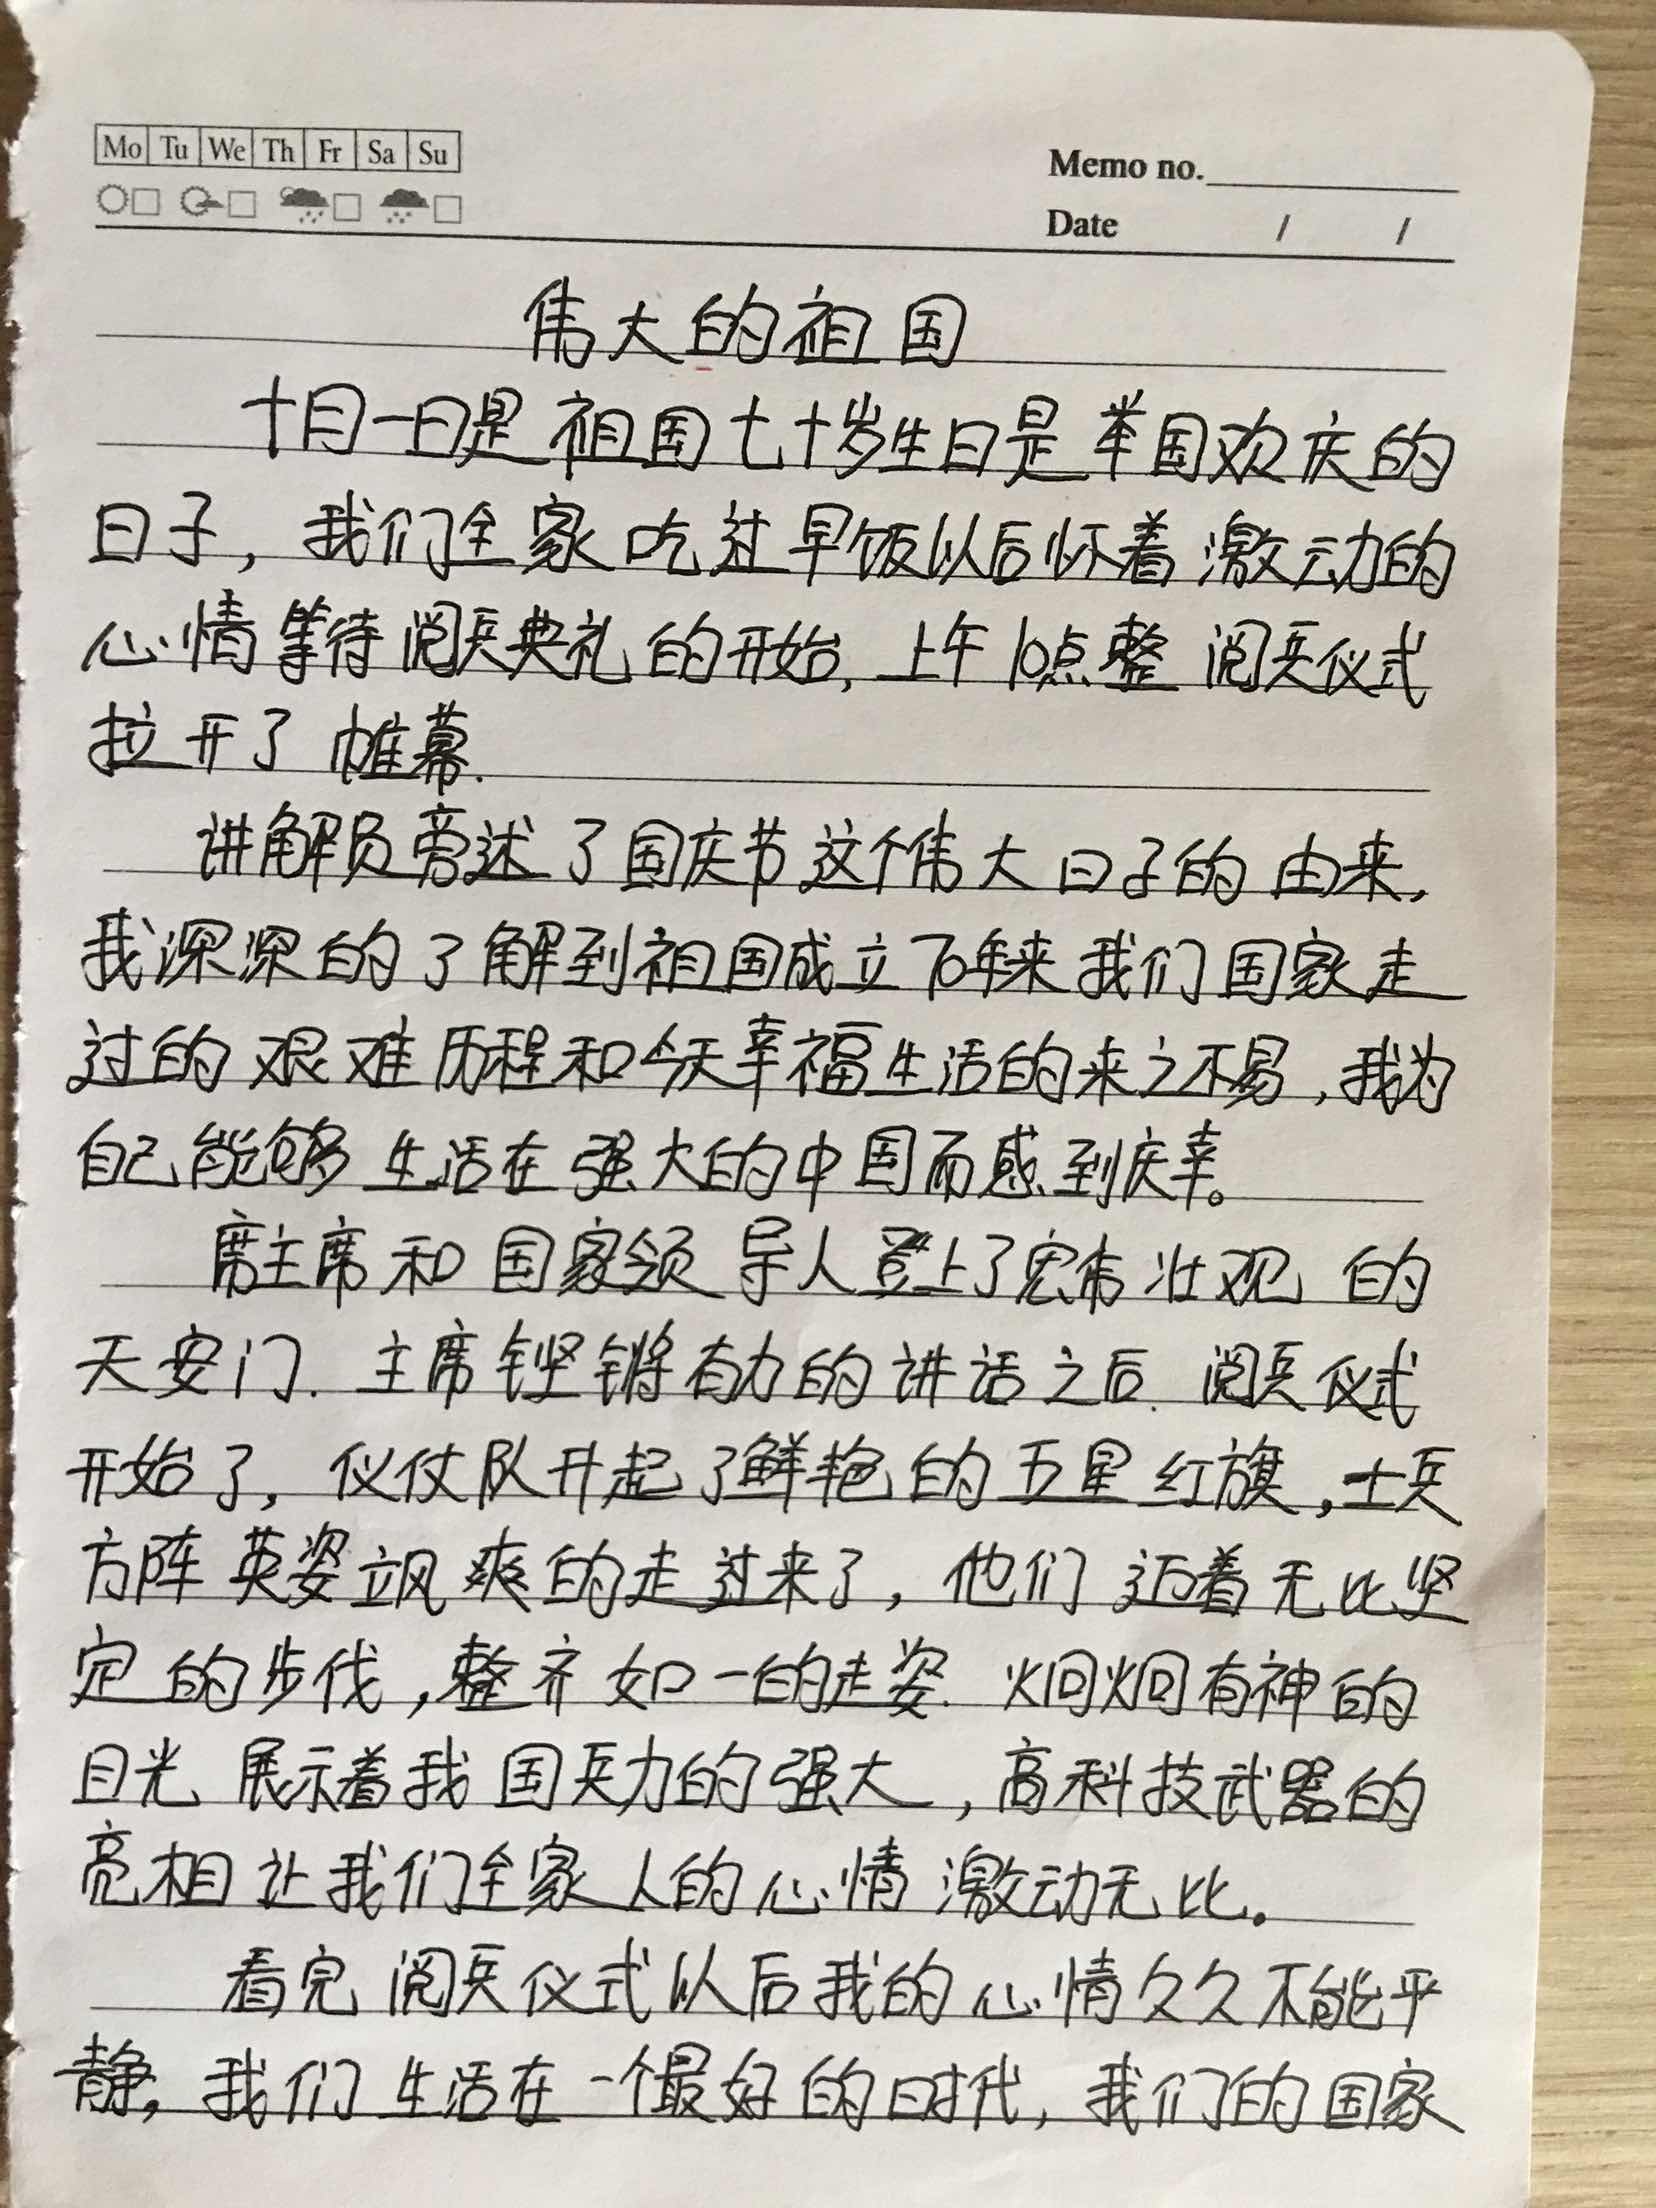 Mo Tu We Th Fr Sa Su
Memo no.
Date / /
伟大的祖国
十月一日是祖国七十岁生日是举国欢庆的
日子，我们全家吃过早饭以后怀着激动的
心情等待阅兵典礼的开始,上午10点整阅兵仪式
拉开了帷幕.
讲解员旁述了国庆节这个伟大日子的由来,
我深深的了解到祖国成立70年来我们国家走
过的艰难历程和今天幸福生活的来之不易,我为
自己能够生活在强大的中国而感到庆幸。
席主席和国家领导人登上了宏伟壮观的
天安门.主席铿锵有力的讲话之后.阅兵仪式
开始了,仪仗队升起了鲜艳的五星红旗,士兵
方阵英姿飒爽的走过来了,他们迈着无比坚
定的步伐,整齐如一的走姿.炯炯有神的
目光展示着我国兵力的强大,高科技武器的
亮相让我们全家人的心情激动无比。
看完阅兵仪式以后我的心情久久不能平
静,我们生活在一个最好的时代,我们的国家